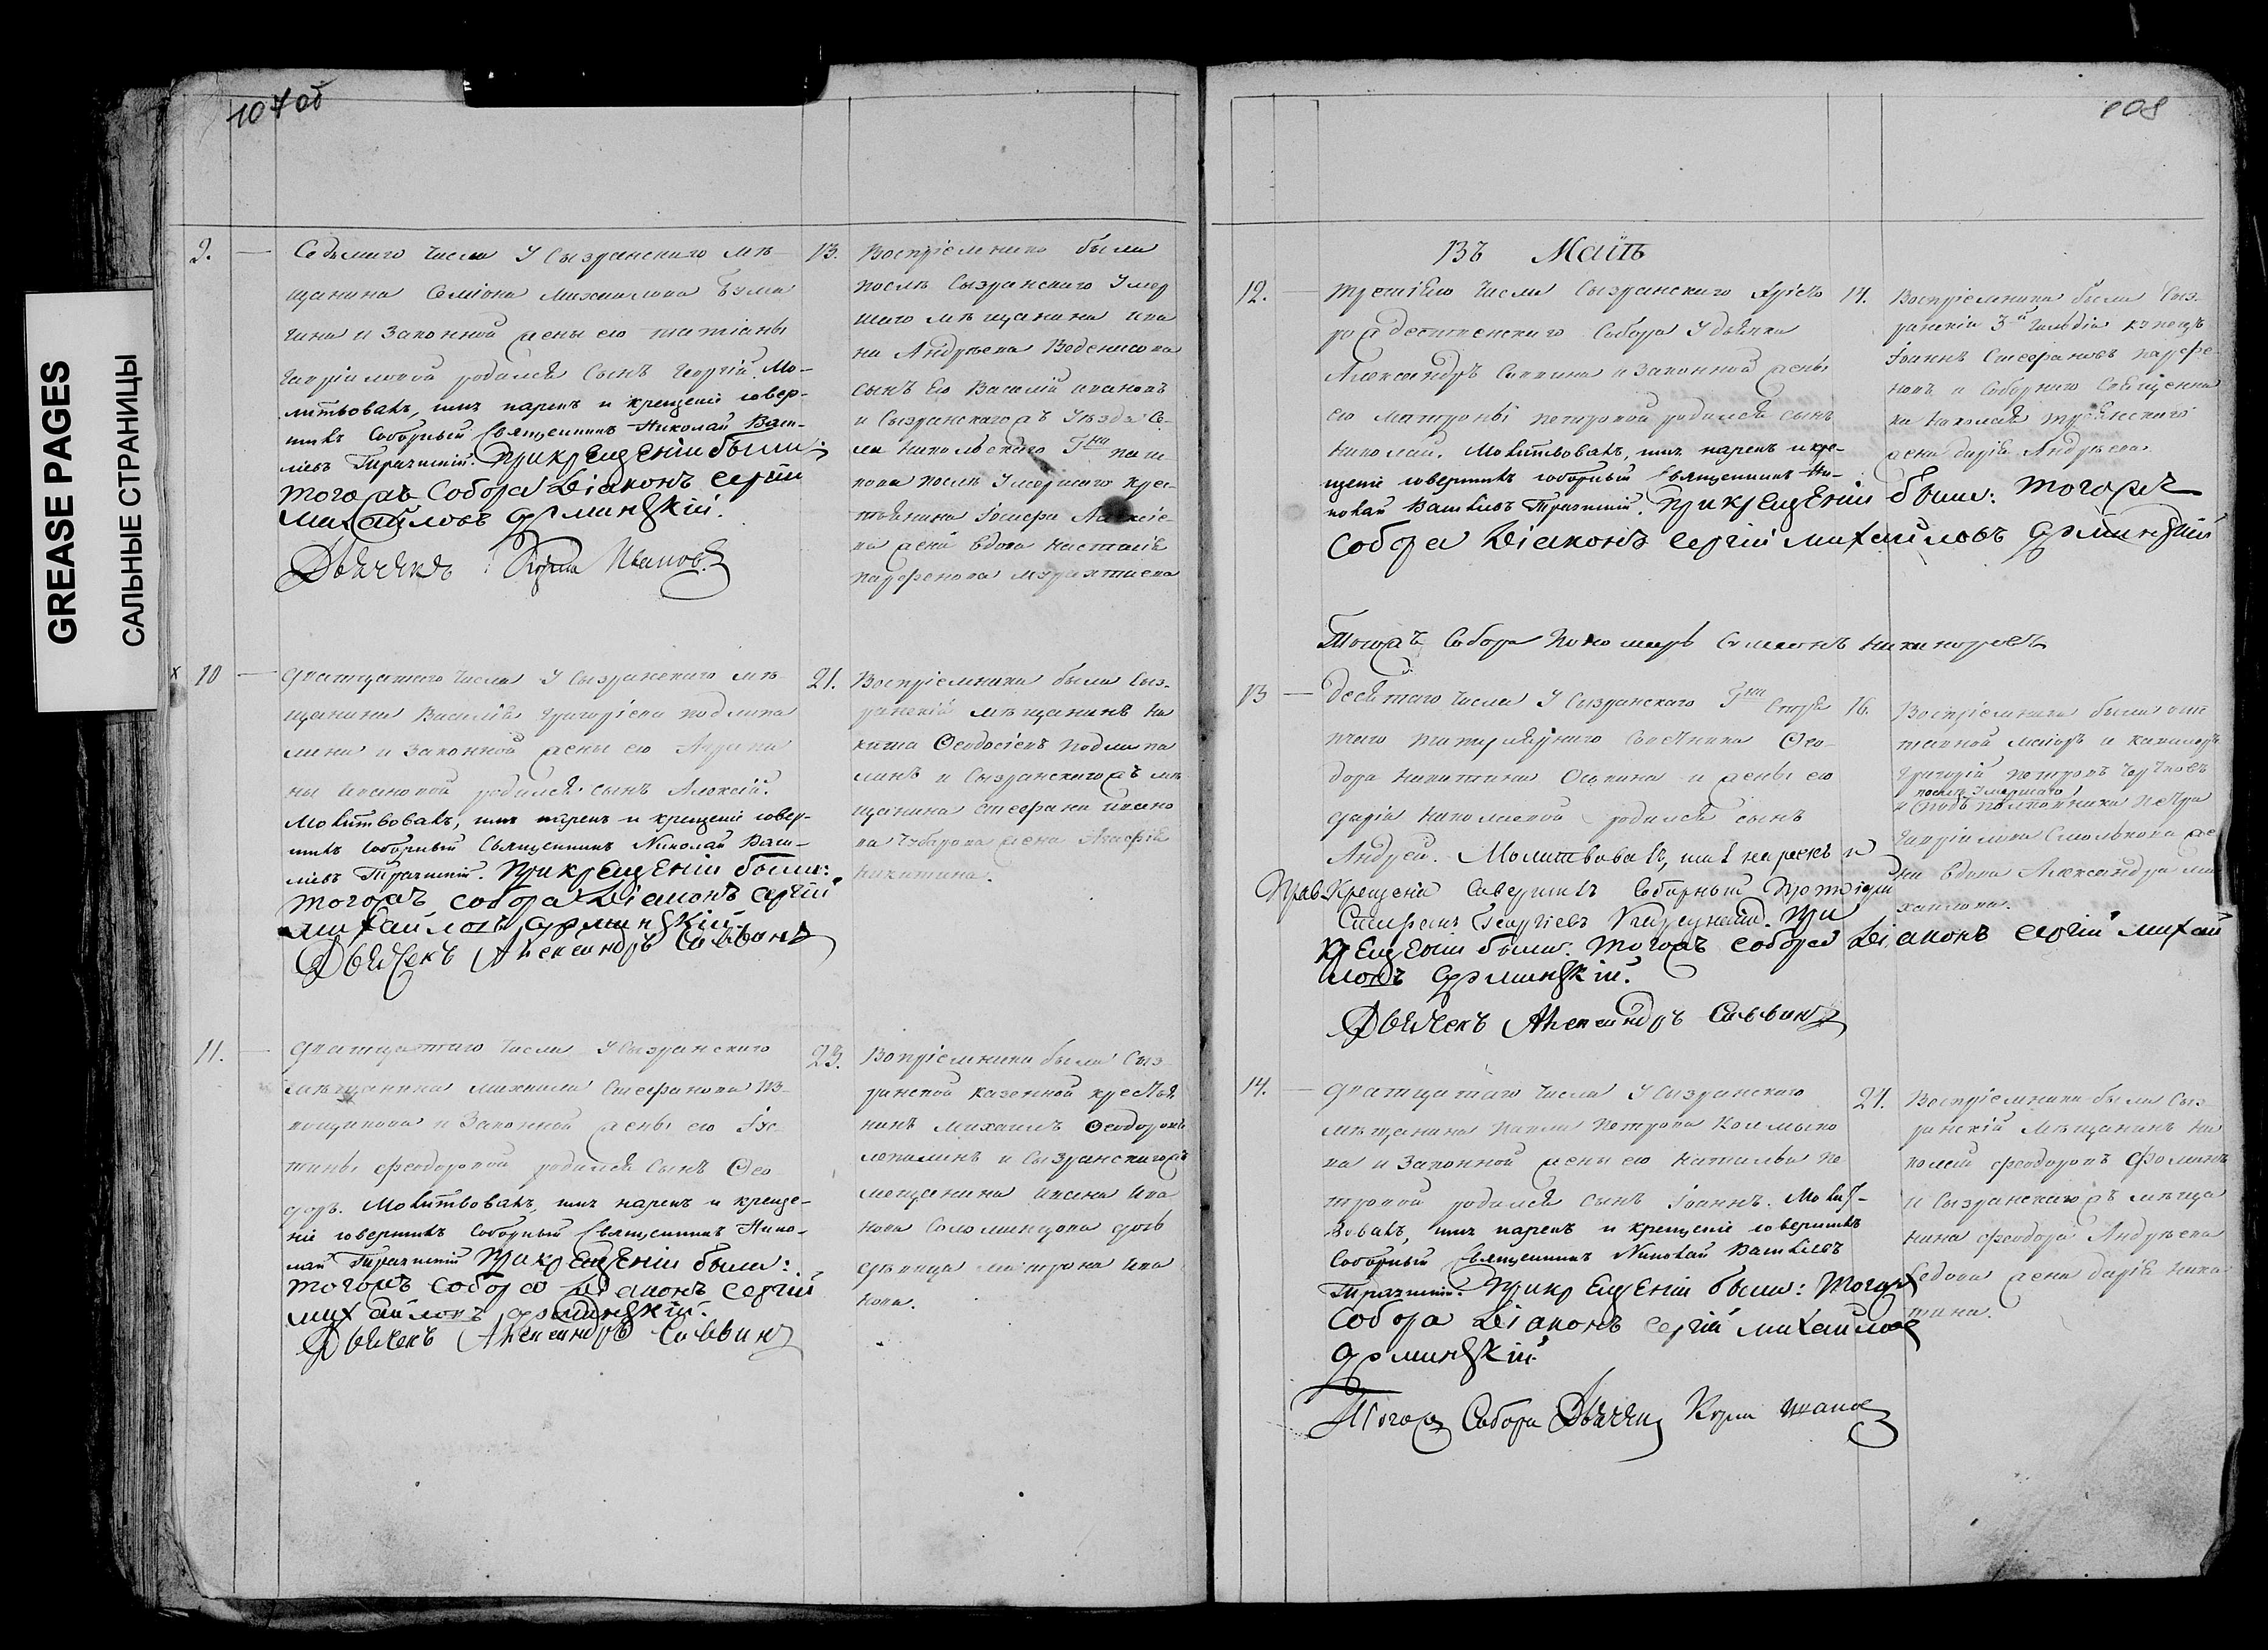 GREASE PAGES
САЛЬНЫЕ СТРАНИЦЫ
107 об
9.
Седьмаго числа у Сызранскаго мѣ-
щанина Семіона Михаилова
и законной жены его татіаны
Гавріиловой родился сынъ Георгій. Мо-
литвовалъ, имя нарекъ и крещеніе совер-
шилъ Соборный Священникъ Николай Васи-
ліевъ. При крещеніи были:
тогожъ Собора діаконъ сергій
михайловъ
Дьячекъ Козма Ивановъ
13.
Воспріемники были
послѣ Сызранскаго умер
шаго мѣщанина ива
на Андрѣева Веденисова
сынъ его Василій ивановъ
и Сызранскаго жъ уѣзда се-
ла никольскаго Гна
послѣ умершаго кре
стьянина Іосифа Алексіе-
ва жена вдова наталія
парфенова
10
дватцатаго числа у Сызранскаго мѣ-
щанина Василія григоріева подлипа
лина и законной жены его Агрипи
ны ивановой родился сынъ Алексій.
Молитвовалъ, имя нарекъ и крещеніе совер-
шилъ Соборный Священникъ Николай Васи-
ліевъ. При крещеніи были:
тогожъ собора діаконъ сергій
михайловъ
Дьячекъ Александръ Саввинъ
21.
Воспріемники были Сыз-
ранскій мѣщанинъ ни
кита Ѳеодосіевъ подлипа
линъ и Сызранскаго жъ мѣ
щанина стефана ивано
ва жена Агафія
никитина.
11.
дватцатаго числа у Сызранскаго
мѣщанина михаила Стефанова из-
вощикова и законной жены его Іус-
тины феодоровой родился сынъ Ѳео
доръ. Молитвовалъ, имя нарекъ и креще-
ніе совершилъ Соборный Священникъ Нико-
лай При крещеніи были:
тогожъ собора діаконъ сергій
михайловъ
Дьячекъ Александръ Саввинъ
23.
Вопріемники были Сыз
ранской казенной крестья
нинъ михаилъ Ѳеодоровъ
и Сызранскаго жъ
мещанина ивана ива
нова Соломинцова дочь
дѣвица матрона ива
нова.
108
Въ Маіѣ
12.
третіяго числа Сызранскаго Хрісто
рождественскаго Собора у дьячка
Александра Саввина и законной жены
его матроны петровой родился сынъ
николай. Молитвовалъ, имя нарекъ и кре-
щеніе совершилъ соборный Священникъ Ни-
колай Василіевъ. При крещеніи были: тогожъ
собора діаконъ сергій михайловъ
Тогожъ Собора пономарь Симеонъ никаноровъ
Воспріемники были Сыз-
ранскій 3й гильдіи купецъ
Іоаннъ Стефановъ парфе-
новъ и Соборнаго Священни
ка николая
жена дарія Андрѣева
13
десятаго числа у Сызранскаго Гна
титулярнаго Совѣтника Ѳео
дора никитина и жены его
даріи николаевой родился сынъ
Андрей. Молитвовалъ, имя нарекъ и
крещеніе совершилъ Соборный Протоіерей
Стефанъ Георгіевъ При
крещеніи были: тогожъ собора діаконъ сергій михай
ловъ
Дьячекъ Александръ Саввинъ
16.
Воспріемники были отс
тавной маіоръ и кавалеръ
григорій петровъ
послѣ умершаго
помѣщика петра
гавріилова Смолькова же
на вдова Александра ми
хайлова.
14.
дватцатаго числа у Сызранскаго
мѣщанина павла петрова Колмыко
ва и законной жены его наталіи пе
тровой родился сынъ Іоаннъ. Молит-
вовалъ, имя нарекъ и крещеніе совершилъ
Соборный Священникъ Николай Василіевъ
При крещеніи были: тогожъ
собора діаконъ сергій михайловъ
Тогожъ Собора Дьячекъ Козма Ивановъ
21.
Воспріемники были Сыз-
ранскій мѣщанинъ ни
колай феодоровъ Фоминъ
и Сызранскаго жъ мѣща
нина феодора Андрѣева
Седова жена дарія ники
тина.